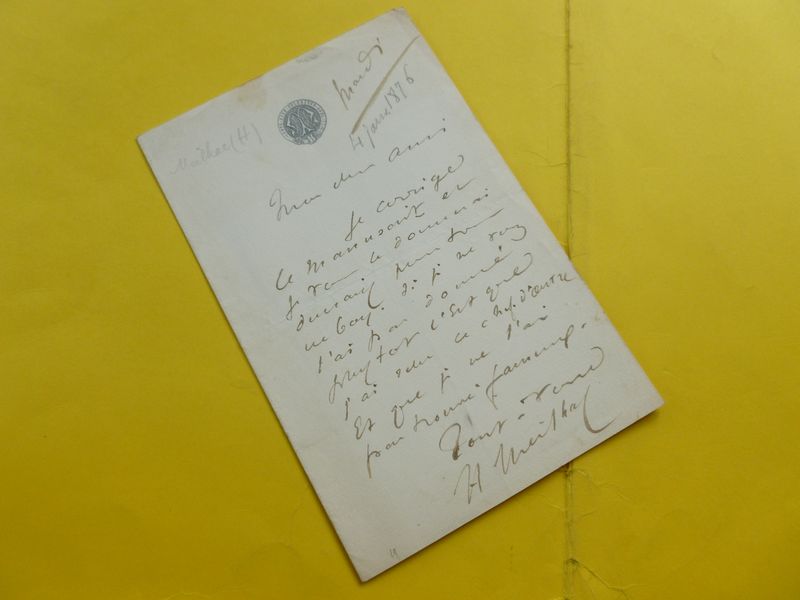 Mardi
4 janv. 1876
Meilhac (H)
Mon cher ami
Je corrige
le manuscrit et
je vous le donnerai
demain pour
Si je ne vous
l'ai pas donné
plus tôt c'est que
j'ai relu ce chef d'œuvre
Et que je ne l'ai
pas trouvé fameux.
Tout à vous
H Meilhac